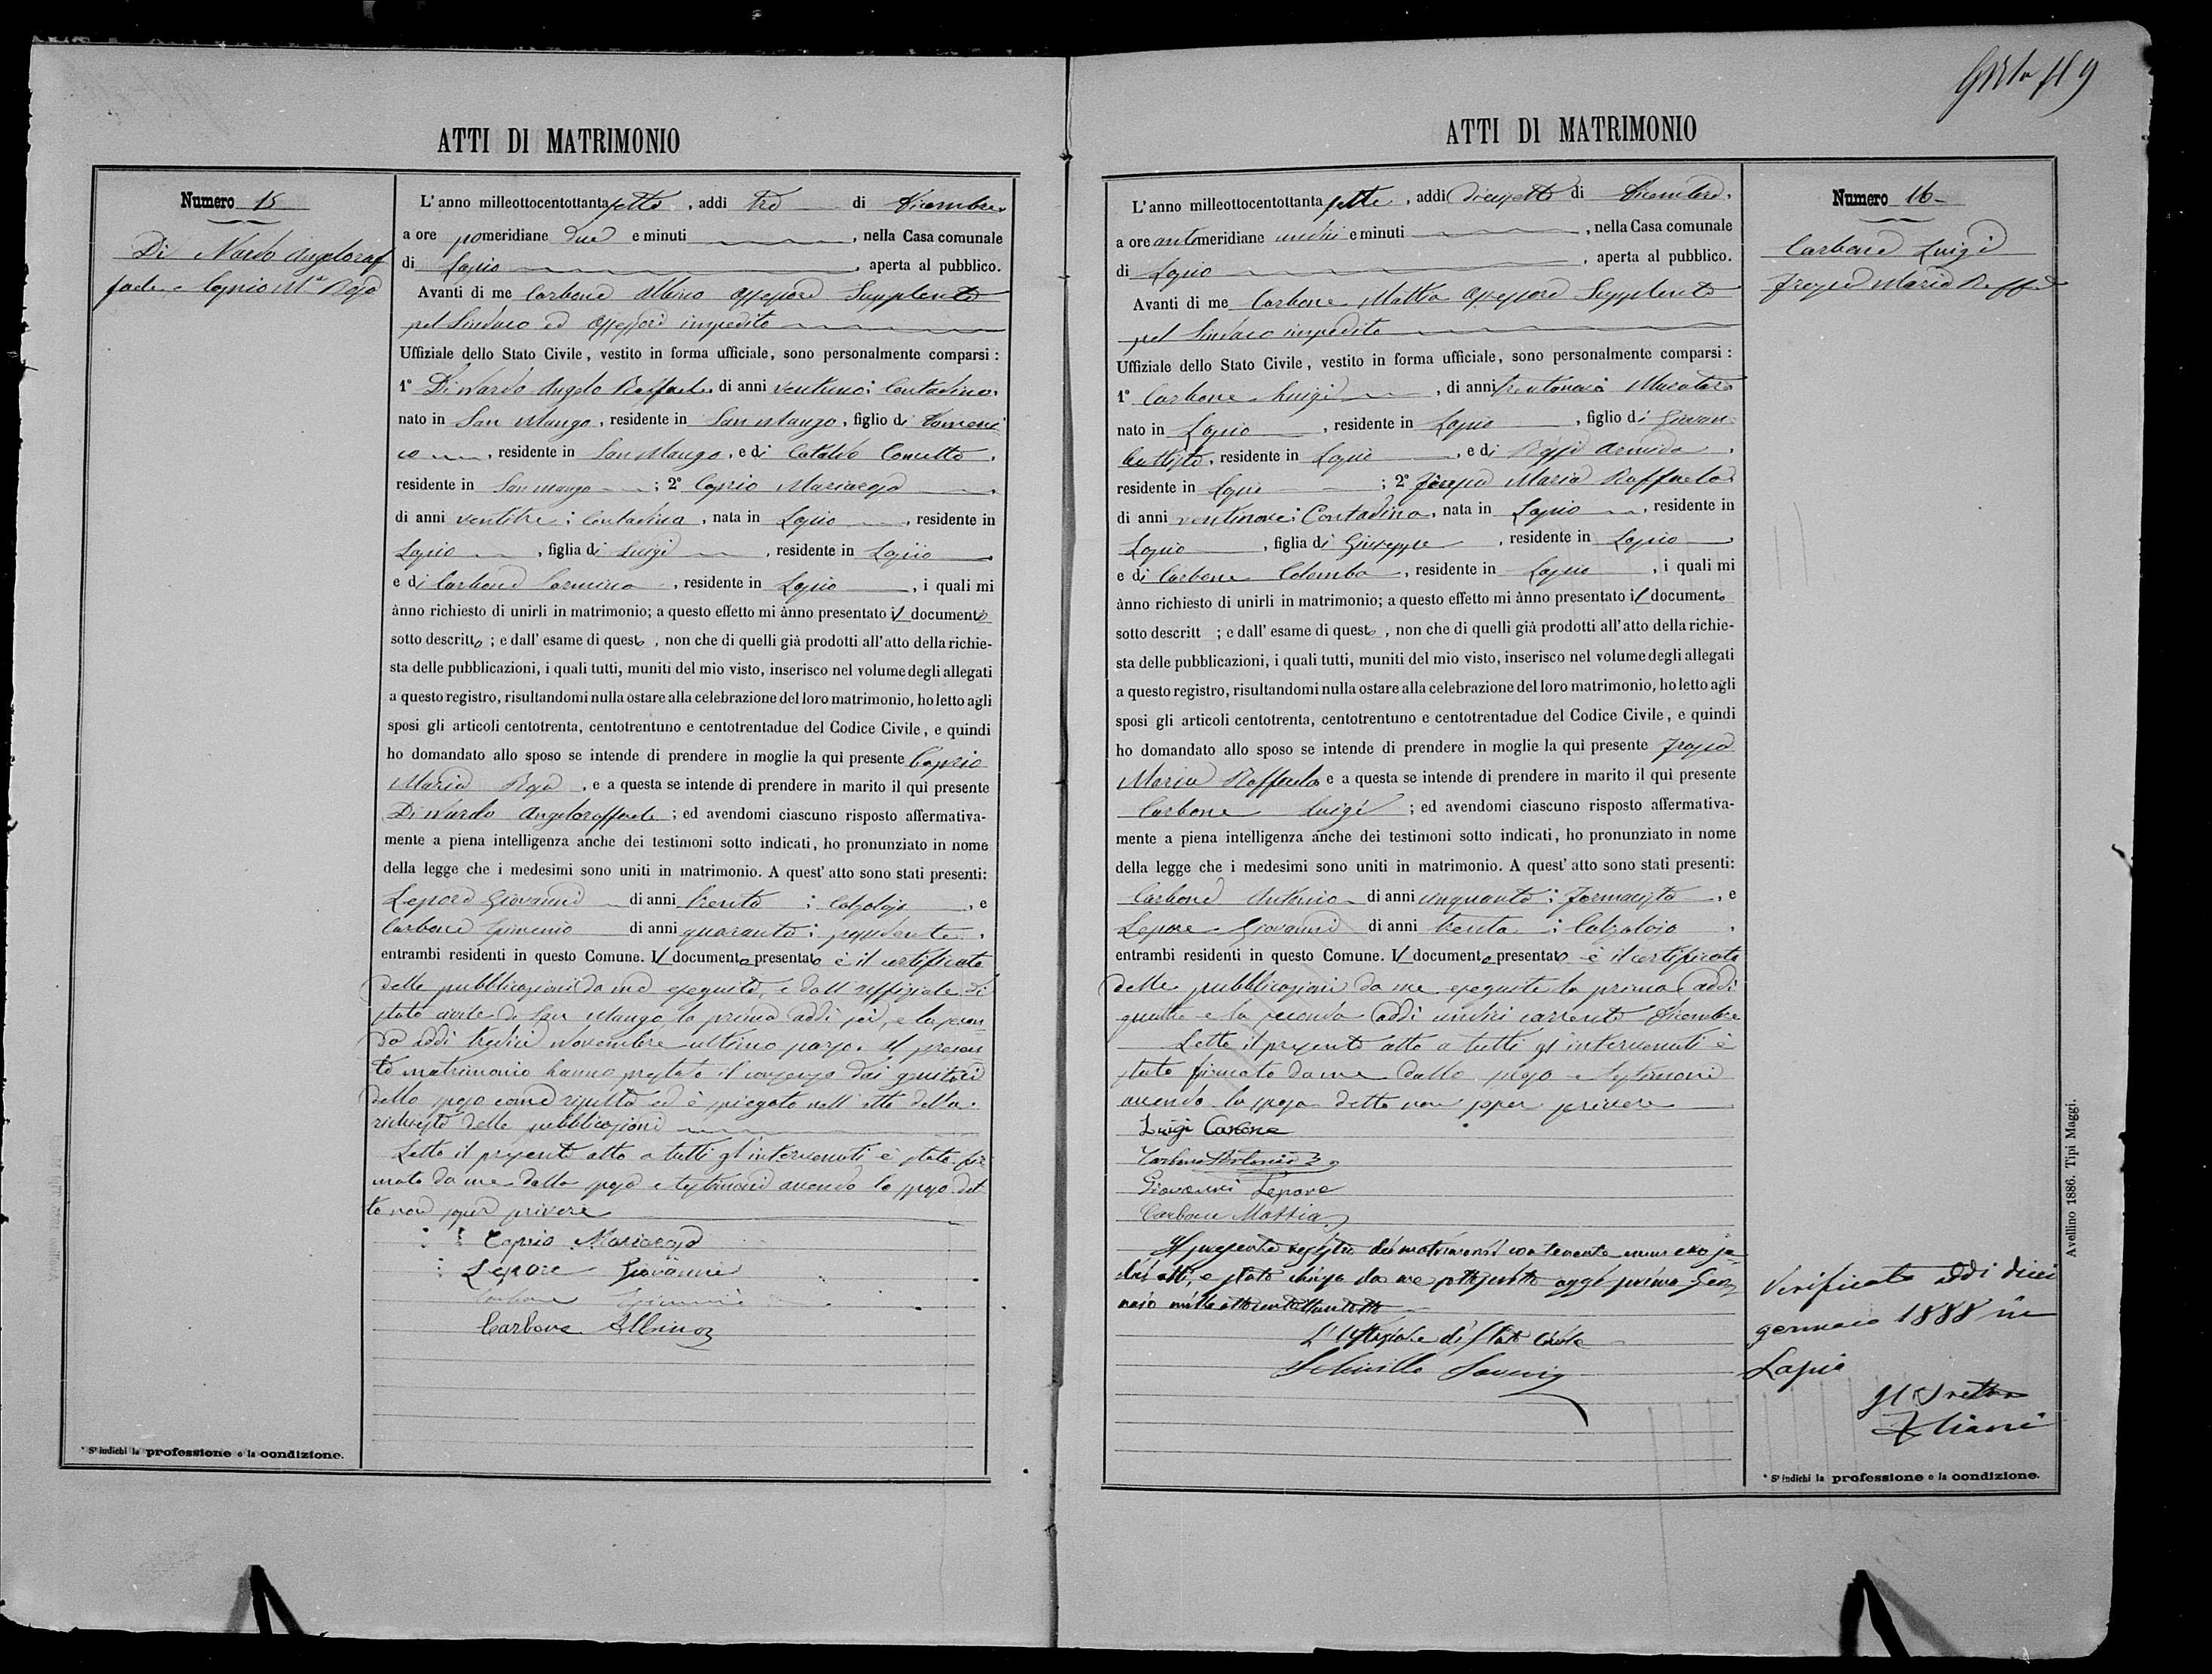 ATTI DI MATRIMONIO
Numero 15
Di Nardo Angeloraf
faele e Caprio Mª Rosa
L'anno milleottocentottantasette, addi tre di Dicembre
a ore pomeridiane due e minuti , nella Casa comunale
di Lapio , aperta al pubblico.
Avanti di me Carbone Albino Assessore Supplente
pel Sindaco ed Assessori impedito
Uffiziale dello Stato Civile, vestito in forma ufficiale, sono personalmente comparsi:
1º Di Nardo Angelo Raffaele, di anni ventuno; Contadino,
nato in San Mango, residente in San Mango, figlio di Domeni
co , residente in San Mango, e di Cataldo Donetta,
residente in San Mango ; 2º Caprio Mariarosa ,
di anni ventitre; Contadina, nata in Lapio , residente in
Lapio , figlia di Luigi , residente in Lapio ,
e di Carbone Carmina , residente in Lapio , i quali mi
ànno richiesto di unirli in matrimonio; a questo effetto mi ànno presentato il documento
sotto descritto; e dall'esame di questo, non che di quelli già prodotti all'atto della richie-
sta delle pubblicazioni, i quali tutti, muniti del mio visto, inserisco nel volume degli allegati
a questo registro, risultandomi nulla ostare alla celebrazione del loro matrimonio, ho letto agli
sposi gli articoli centotrenta, centotrentuno e centotrentadue del Codice Civile, e quindi
ho domandato allo sposo se intende di prendere in moglie la qui presente Caprio
Maria Rosa , e a questa se intende di prendere in marito il qui presente
Di Nardo Angeloraffaele; ed avendomi ciascuno risposto affermativa-
mente a piena intelligenza anche dei testimoni sotto indicati, ho pronunziato in nome
della legge che i medesimi sono uniti in matrimonio. A quest'atto sono stati presenti:
Lepore Giovanni di anni trenta ; Calzolajo , e
Carbone di anni quaranta; possidente,
entrambi residenti in questo Comune. Il documento presentato è il certificato
delle pubblicazioni da me eseguite, e dall'uffiziale di
stato civile di San Mango la prima addì sei, e la secon
da addì tredici Novembre ultimo passo. Al presen
te matrimonio hanno prestato il consenso dai genitori
dello sposo come risulta ed è spiegato nell'atto della
richiesta delle pubblicazioni
Letto il presente atto a tutti gl'intervenuti è stato fir
mato da me dalla sposa e testimoni avendo lo sposo det
to non saper scrivere
Caprio Mariarosa
Lepore Giovanni
Carbone
Carbone Albino
* Si indichi la professione o la condizione.
ATTI DI MATRIMONIO
Numero 16
Carbone Luigi
Maria Raff
L'anno milleottocentottantasette, addi diciassette di Dicembre,
a ore antimeridiane undici e minuti , nella Casa comunale
di Lapio , aperta al pubblico.
Avanti di me Carbone Mattia Assessore Supplente
pel Sindaco impedito
Uffiziale dello Stato Civile, vestito in forma ufficiale, sono personalmente comparsi:
1º Carbone Luigi , di anni trentanove Muratore
nato in Lapio , residente in Lapio , figlio di Giovan
Battista, residente in Lapio , e di Armida ,
residente in Lapio ; 2º Maria Raffaela
di anni ventinove; Contadina, nata in Lapio , residente in
Lapio , figlia di Giuseppe , residente in Lapio ,
e di Carbone Colomba , residente in Lapio , i quali mi
ànno richiesto di unirli in matrimonio; a questo effetto mi ànno presentato il documento
sotto descritt ; e dall'esame di questo, non che di quelli già prodotti all'atto della richie-
sta delle pubblicazioni, i quali tutti, muniti del mio visto, inserisco nel volume degli allegati
a questo registro, risultandomi nulla ostare alla celebrazione del loro matrimonio, ho letto agli
sposi gli articoli centotrenta, centotrentuno e centotrentadue del Codice Civile, e quindi
ho domandato allo sposo se intende di prendere in moglie la qui presente
Maria Raffaela e a questa se intende di prendere in marito il qui presente
Carbone Luigi ; ed avendomi ciascuno risposto affermativa-
mente a piena intelligenza anche dei testimoni sotto indicati, ho pronunziato in nome
della legge che i medesimi sono uniti in matrimonio. A quest'atto sono stati presenti:
Carbone Antonio di anni cinquanta; Farmacista , e
Lepore Giovanni di anni trenta ; Calzolajo ,
entrambi residenti in questo Comune. Il documento presentato è il certificato
delle pubblicazioni da me eseguite la prima addì
quattro e la seconda addì undici corrente Dicembre
Letto il presente atto a tutti gl'intervenuti è
stato firmato da me dallo sposo e testimoni
avendo la sposa detto non saper scrivere
Luigi Carbone
Carbone Antonio
Giovanni Lepore
Carbone Mattia
Il presente registro dei matrimoni contenente numero se
dici atti, è stato chiuso da me sottoscritto oggi primo Gen
naio milleottocentottantotto
L'Uffiziale di Stato Civile
Verificato addì dieci
gennaio 1888 in
Lapio
Il Pretore
* Si indichi la professione o la condizione.
Avellino 1886. Tipi Maggi.